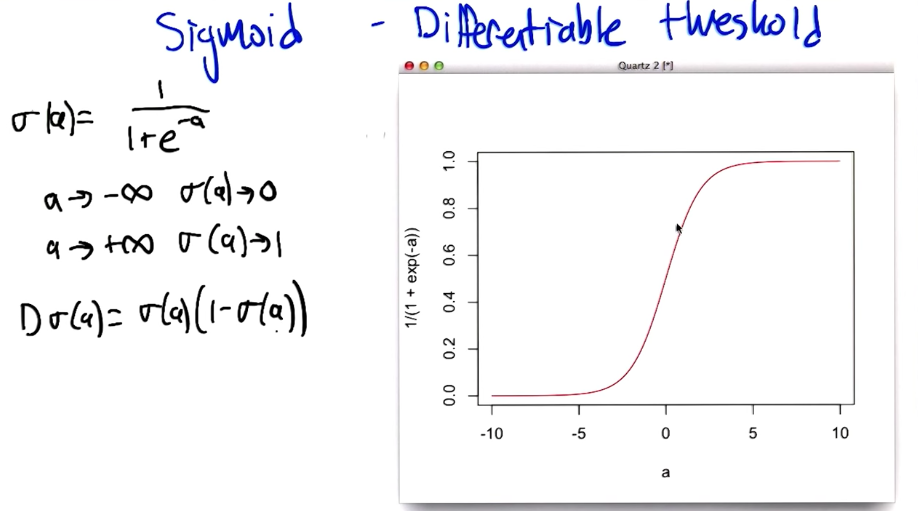 Sigmoid - Differentiable threshold
σ(a) = 1/(1+e^-a)
a → -∞ σ(a) → 0
a → +∞ σ(a) → 1
Dσ(a) = σ(a)(1-σ(a))
Quartz 2 [*]
1/(1 + exp(-a))
1.0
0.8
0.6
0.4
0.2
0.0
-10 -5 0 5 10
a